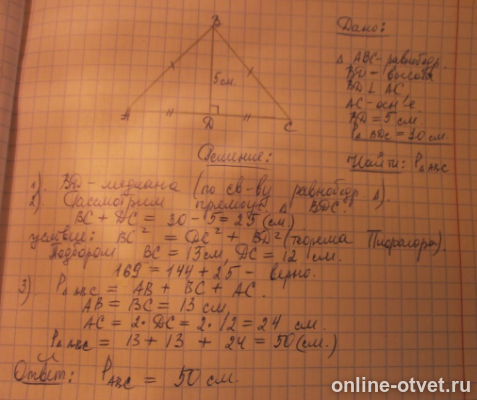 B
5 см
A
D
C
Дано:
Δ ABC - равнобедр.
BD - высота
BD ⊥ AC
AC - осн-е
BD = 5 см
P Δ BDC = 30 см
Найти: P Δ ABC
Решение:
1). BD - медиана (по св-ву равнобедр. Δ).
2) Рассмотрим прямоуг. Δ BDC:
BC + DC = 30 - 5 = 25 (см)
условие: BC² = DC² + BD² (теорема Пифагора).
Подбором BC = 13 см, DC = 12 см.
169 = 144 + 25 - верно.
3) P Δ ABC = AB + BC + AC.
AB = BC = 13 см
AC = 2 · DC = 2 · 12 = 24 см.
P Δ ABC = 13 + 13 + 24 = 50 (см.)
Ответ: P ABC = 50 см.
online-otvet.ru